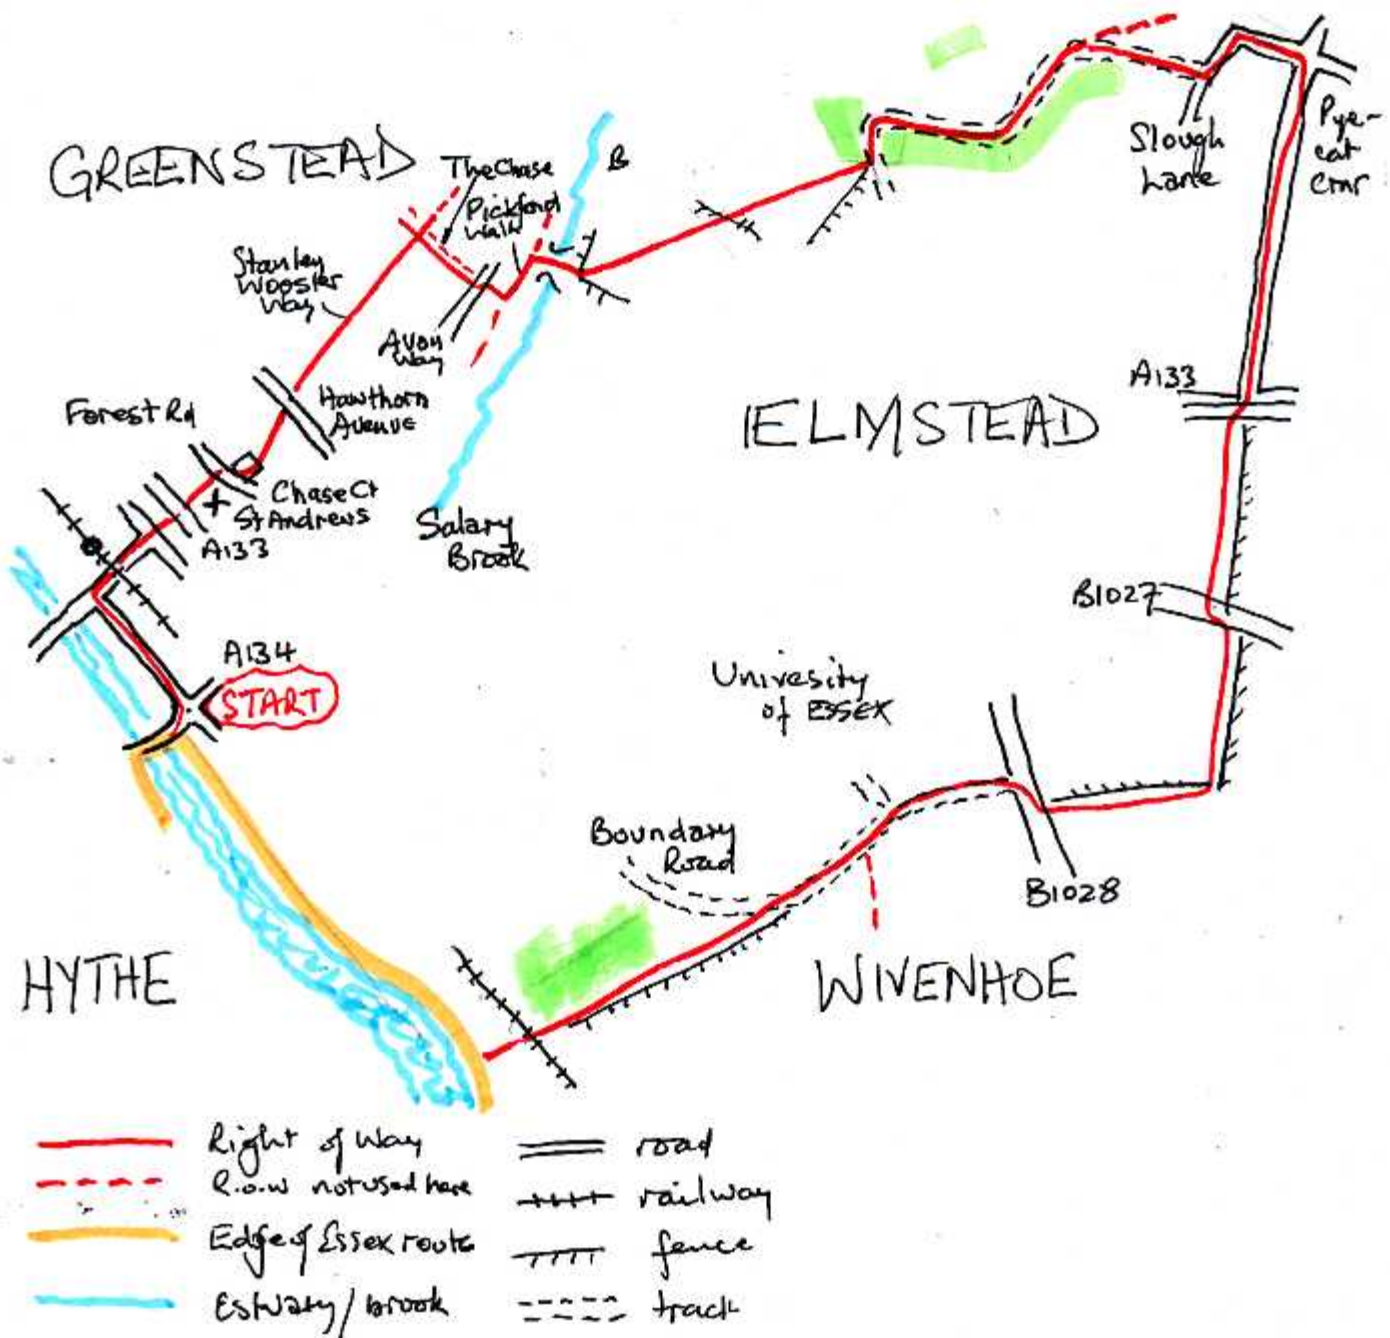 GREENSTEAD
The Chase
Pickford
Walk
B
Slough
Lane
Pye-
cat
Crnr
Stanley
Wooster
Way
Avon
Way
A133
Forest Rd
Hawthorn
Avenue
ELMSTEAD
Chase Ct
St Andrews
A133
Salary
Brook
B1027
A134
START
Univesity
of ESSEX
Boundary
Road
B1028
HYTHE
WIVENHOE
Right of Way
R.o.w not used here
Edge of Essex route
Estuary/brook
road
railway
fence
track